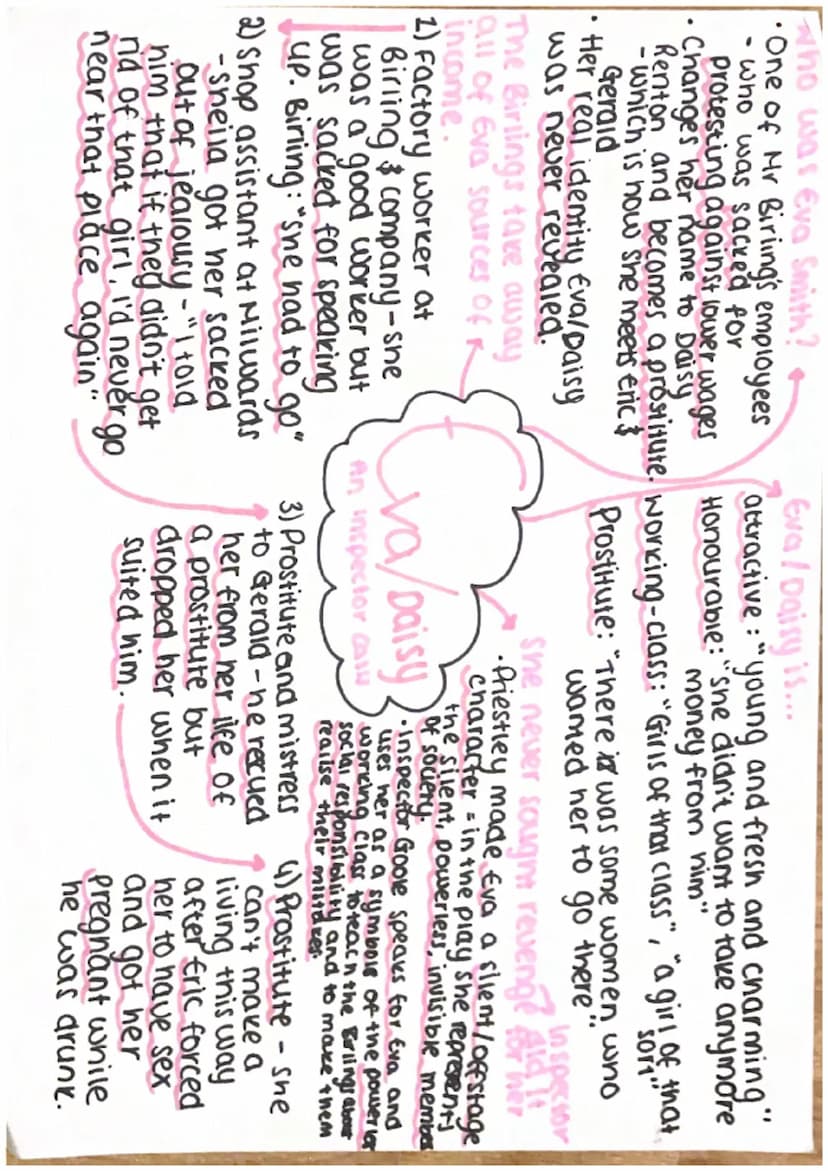 Who was Eva Smith?
· One of Mr Birling's employees
- who was sacked for
protesting against lower wages
· Changes her name to Daisy
Renton and becomes a prostitute.
- which is how she meets Eric &
Gerald
· Her real identity Eva/Daisy
was never revealed.
Eva/Daisy is...
attractive: "young and fresh and charming"
Honourable: "she didn't want to take anymore
money from him"
Working-class: "Girls of that class", "a girl of that
sort"
Prostitute: "There was some women who
wanted her to go there".
The Birlings take away
all of Eva' sources of
income.
1) Factory worker at
Birling & company - she
was a good worker but
was sacked for speaking
up. Birling: "she had to go"
2) Shop assistant at Milwards
- Sheila got her sacked
out of jealousy - "I told
him that if they didn't get
rid of that girl, I'd never go
near that place again"
Eva/Daisy
An inspector calls
She never sought revenge? Inspector
did it
for her
· Priestley made Eva a silent/offstage
character = in the play she represents
the silent, powerless, invisible member
of society.
· Inspector Goole speaks for Eva and
uses her as a symbol of the
working class to teach the Birlings about
social responsibility and to make them
realise their
3) Prostitute and mistress
to Gerald - he rescued
her from her life of
a prostitute but
dropped her when it
suited him.
4) Prostitute - she
can't make a
living this way
after Eric forced
her to have sex
and got her
pregnant while
he was drunk.